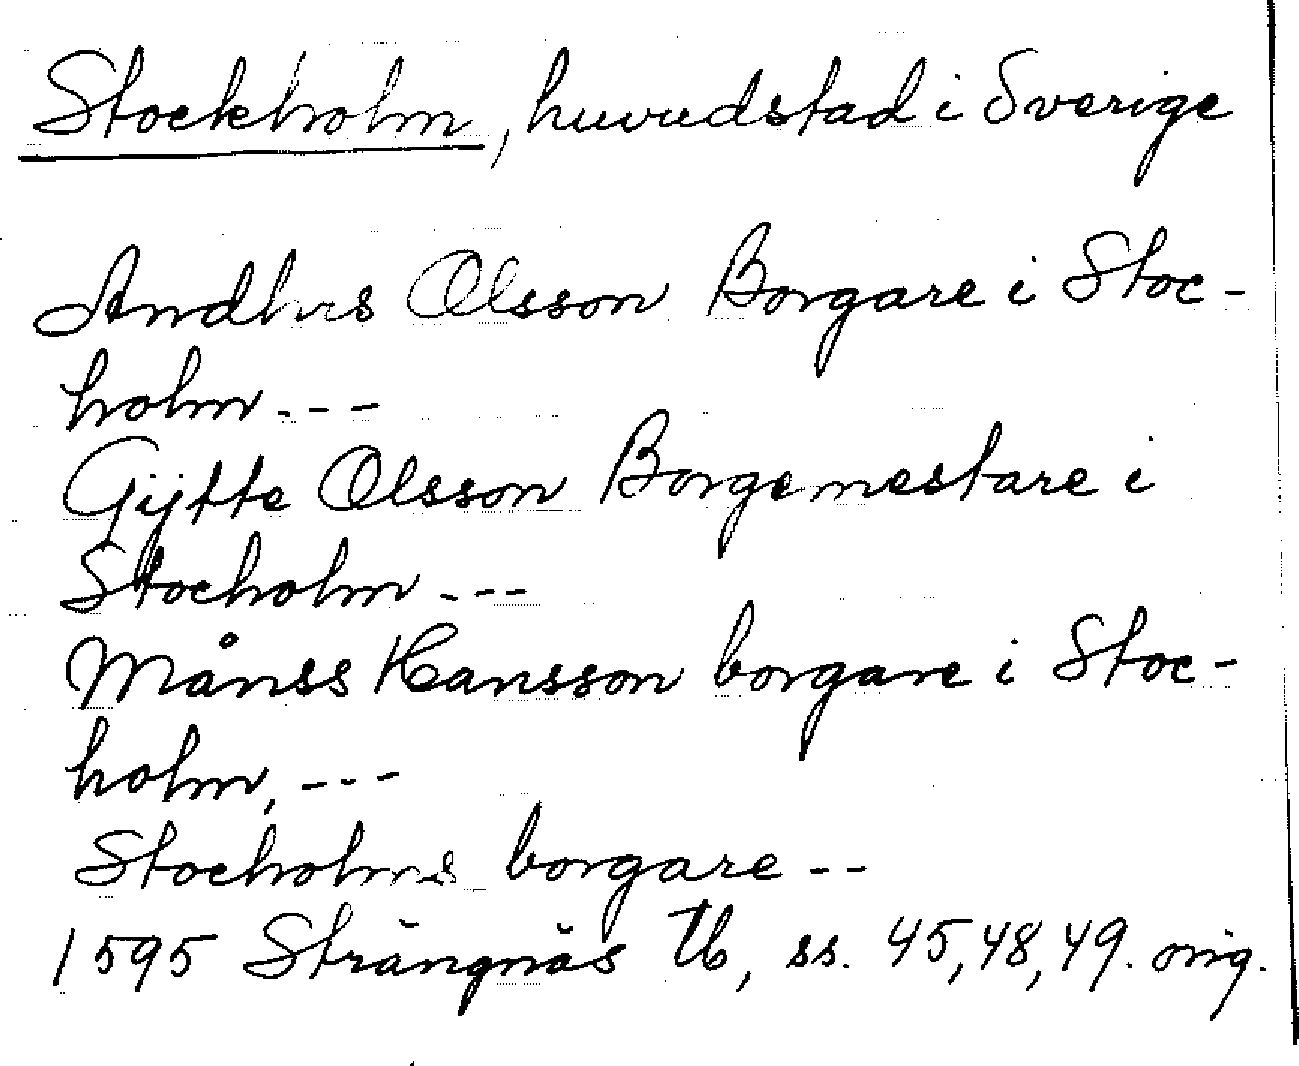 Stockholm, huvudstad i Sverige
Andhrs Olsson Borgare i Stoc-
holm ---
Gÿtte Olsson Borgemestare i
Stocholm ---
Månss Hansson borgare i Stoc-
holm, ---
Stocholms borgare --
1595 Strängnäs tb, ss. 45, 48, 49. orig.